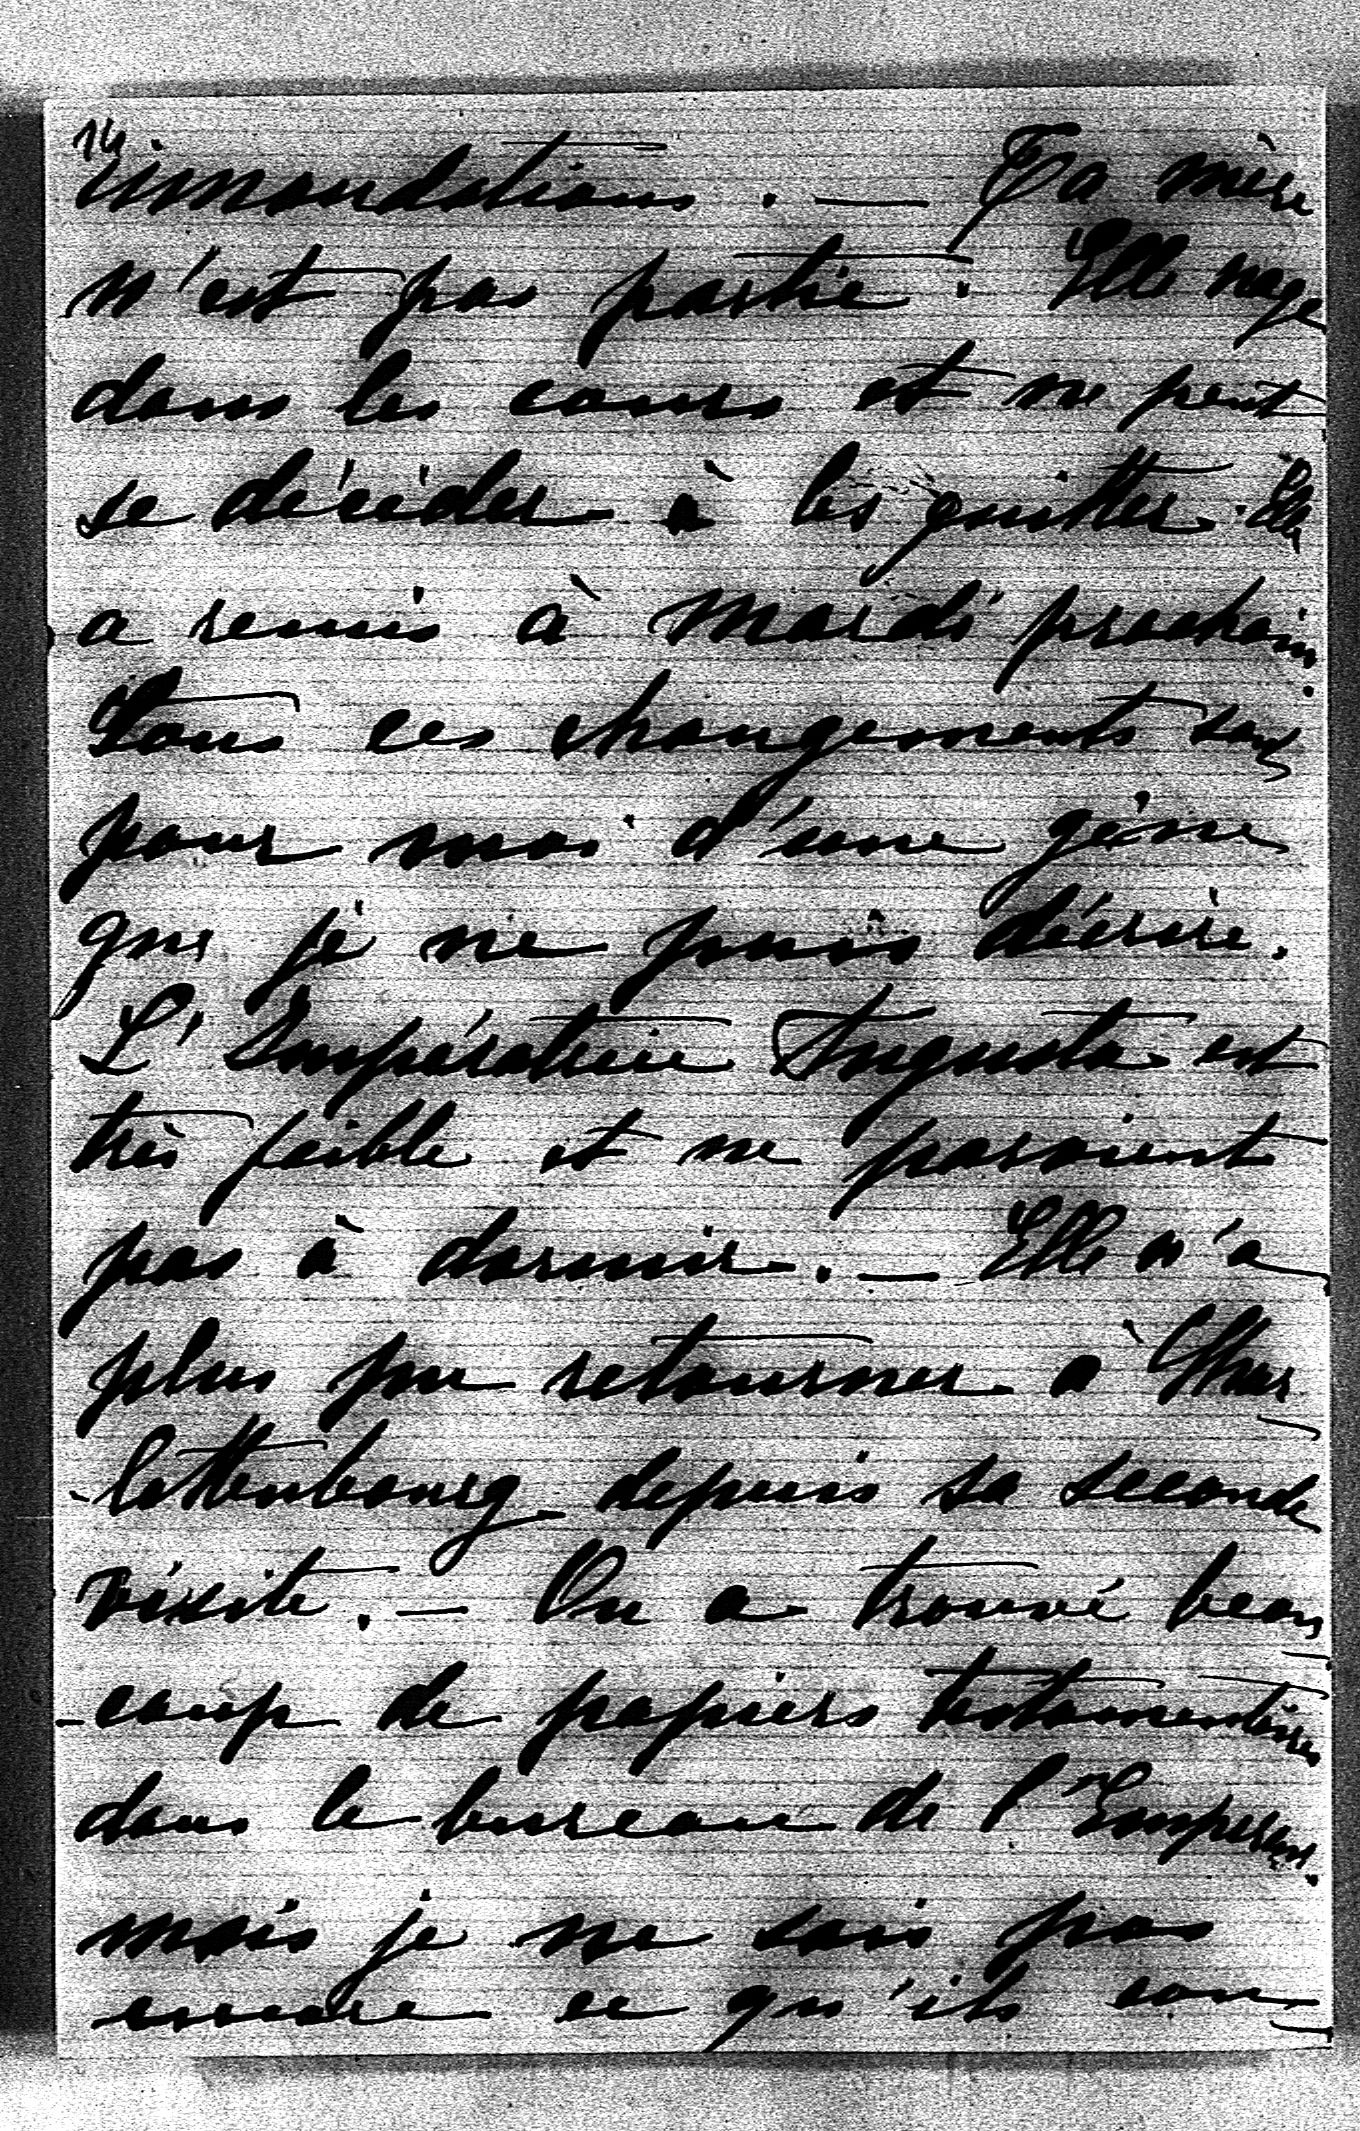 14
innondations. — Ta mère
n'est pas partie. Elle nage
dans les cours et ne peut
se décider à les quitter. Elle
a remis à Mardi prochain.
Tous ces changements sont
pour moi d'une gêne
que je ne puis décrire.
L'Impératrice Augusta est
très faible et ne parvient
pas à dormir. — Elle n'a
plus pu retourner à Char
-lottenbourg depuis sa seconde
visite. — On a trouvé beau
-coup de papiers testamentaires
dans le bureau de l'Empereur.
mais je ne sais pas
encore ce qu'ils con-